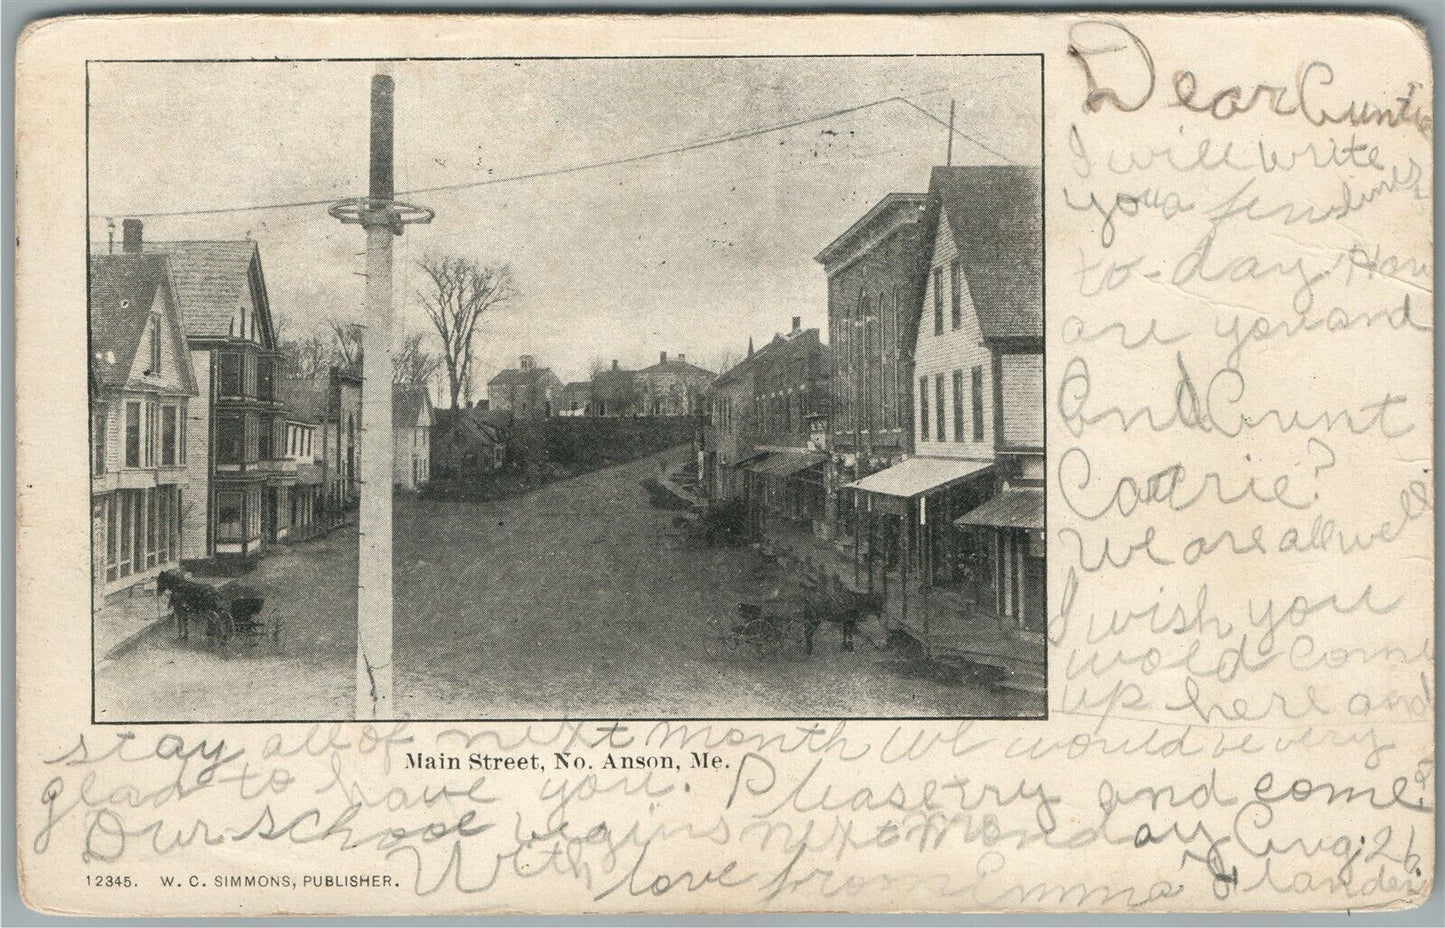 Dear Auntie
I will write
you a few lines
to-day. How
are you and
and Aunt
Carrie?
We are all well
I wish you
wold come
up here and
stay all of next month we would be very
Main Street, No. Anson, Me.
glad to have you. Please try and come.
Our school begins next Monday Aug. 26
12345. W. C. SIMMONS, PUBLISHER.
With love from Emma Flanders